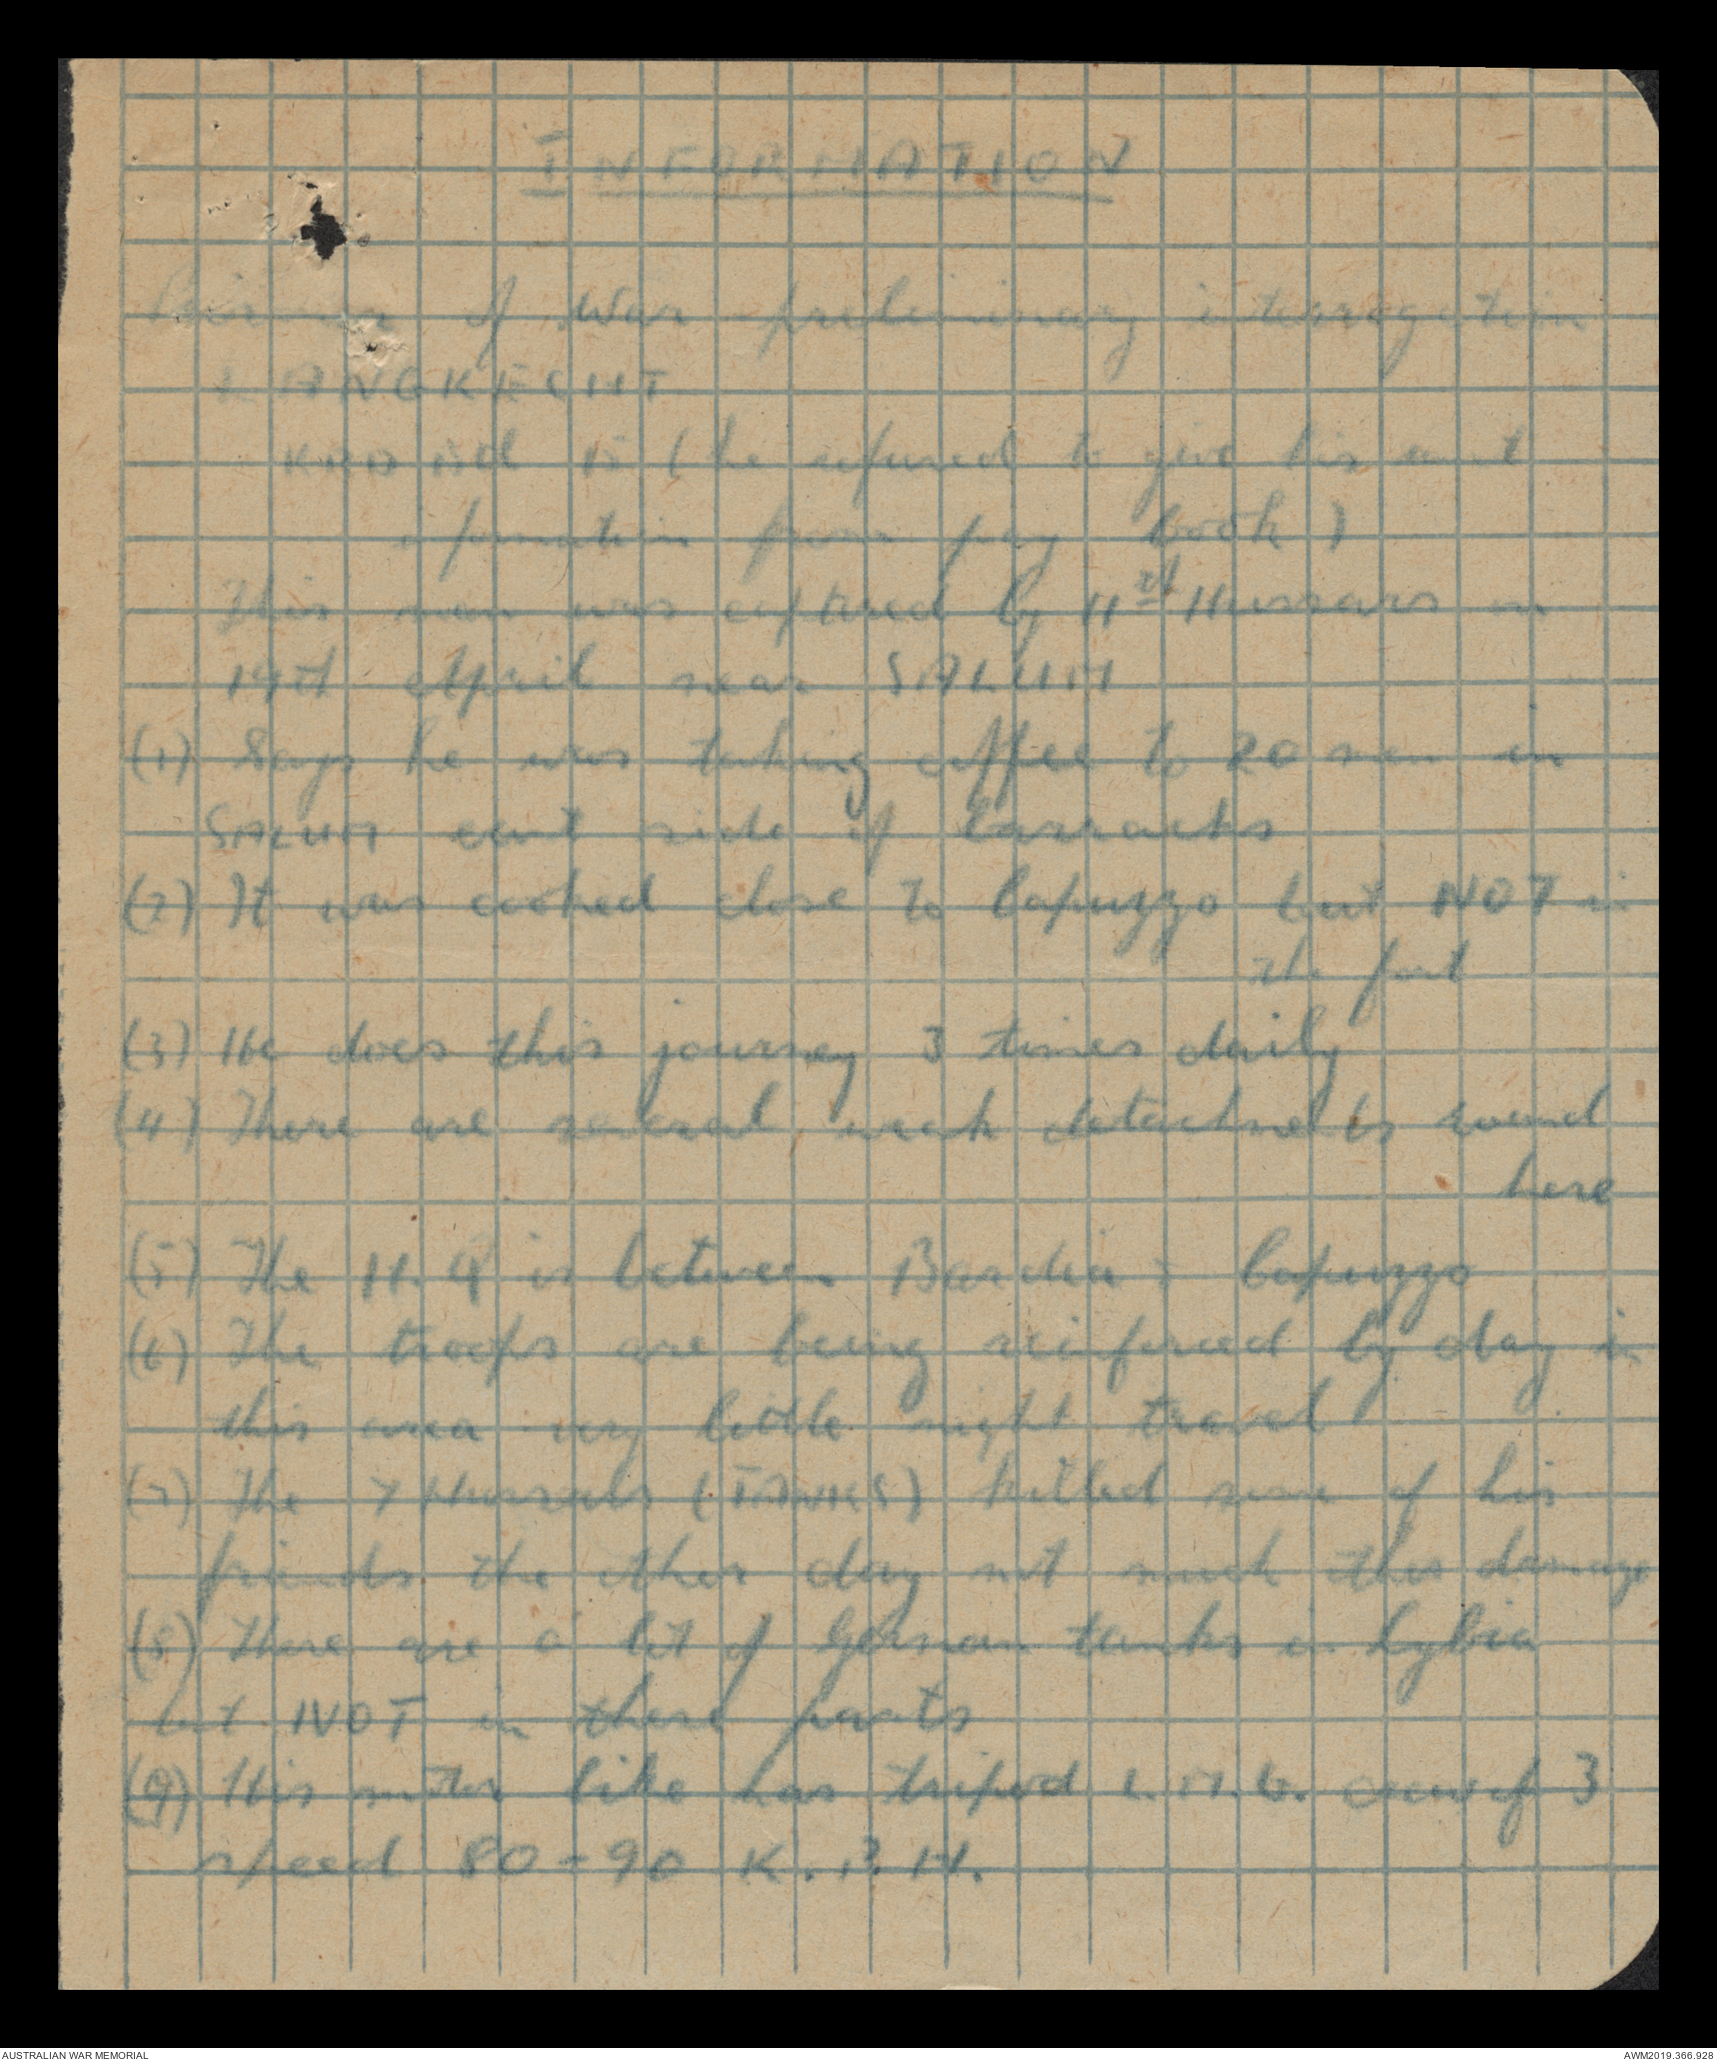 INFORMATION
Prisoner of War preliminary interrogation
LANGKECHT
KRD (he refused to give his unit
information from pay book)
This man was captured by 11th Hussars on
19th April near SALUM
(1) Says he was taking coffee to 20 men in
SALUM east side of barracks
(2) It was cooked close to Capuzzo but NOT in
the fort
(3) He does this journey 3 times daily
(4) There are several weak detachments round
here
(5) The H.Q is between Bardia & Capuzzo
(6) The troops are being reinforced by day in
this area very little night travel
(7) The 7 Hussars (TANKS) killed some of his
friends the other day not much other damage
(8) There are a lot of German tanks in Lybia
but NOT in these parts
(9) His motor bike has tripod L.M.G. crew of 3
speed 80-90 K.P.H.
AUSTRALIAN WAR MEMORIAL
AWM2019.366.928